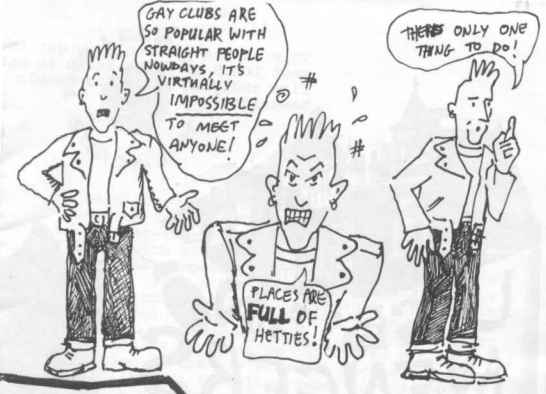 GAY CLUBS ARE
SO POPULAR WITH
STRAIGHT PEOPLE
NOWDAYS, IT'S
VIRTUALLY
IMPOSSIBLE
TO MEET
ANYONE!
#
#
PLACES ARE
FULL OF
HETTIES!
THERES ONLY ONE
THING TO DO!